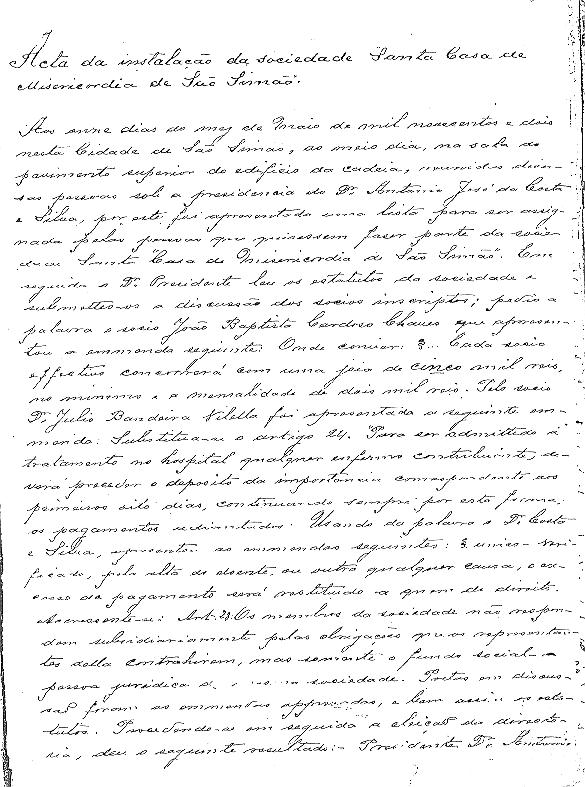 Acta da instalação da sociedade Santa Casa de
Misericordia de São Simão.
Aos onze dias do mez de Maio de mil novecentos e dois
nesta Cidade de São Simão, ao meio dia, na sala do
pavimento superior do edificio da cadeia, reunidas diver-
sas pessoas sob a presidencia do Dr. Antonio José da Costa
e Silva, por este foi apresentada uma lista para ser assig-
nada pelas pessoas que quizessem fazer parte da socie-
dade Santa Casa de Misericordia de São Simão". Em
seguida o Dr. Presidente leu os estatutos da sociedade e
submetteo-os a discussão dos socios inscriptos; pedio a
palavra o socio João Baptista Cardoso Chaves que apresen-
tou a emmenda seguinte: Onde convier: §... Cada socio
effectivo concorrerá com uma joia de cinco mil reis,
no minimo e a mensalidade de dois mil reis. Pelo socio
Dr. Julio Bandeira Vilella foi apresentada a seguinte em-
menda: Substitua-se o artigo 24. Para ser admittido á
tratamento no hospital qualquer enfermo contribuinte, de-
verá preceder o deposito da importancia correspondente aos
primeiros oito dias, continuando sempre por esta forma
os pagamentos adiantados. Usando da palavra o Dr. Costa
e Silva, apresentou as emmendas seguintes: § unico - Veri-
ficado, pela alta do doente, ou outra qualquer causa, o ex-
cesso do pagamento será restituido a quem de direito.
Accrescente-se: Art. 28. Os membros da sociedade não respon-
dem subsidiariamente pelas obrigações que os representan-
tes della contrahirem, mas somente o fundo social a
pessoa juridica d sociedade. Postas em discus-
são foram as emmendas approvadas, e bem assim os esta-
tutos. Procedendo-se em seguida a eleição da directo-
ria, deu o seguinte resultado: - Presidente Dr. Antonio